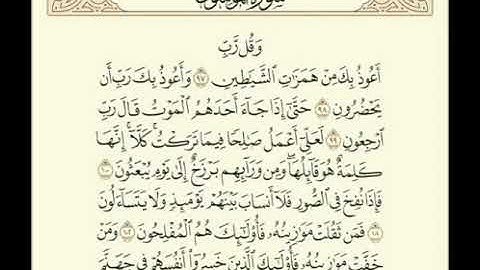 سورة المؤمنون
وَقُل رَّبِّ
أَعُوذُ بِكَ مِنْ هَمَزَٰتِ ٱلشَّيَٰطِينِ ٩٧ وَأَعُوذُ بِكَ رَبِّ أَن
يَحْضُرُونِ ٩٨ حَتَّىٰٓ إِذَا جَآءَ أَحَدَهُمُ ٱلْمَوْتُ قَالَ رَبِّ
ٱرْجِعُونِ ٩٩ لَعَلِّىٓ أَعْمَلُ صَٰلِحًا فِيمَا تَرَكْتُ ۚ كَلَّآ ۚ إِنَّهَا
كَلِمَةٌ هُوَ قَآئِلُهَا ۖ وَمِن وَرَآئِهِم بَرْزَخٌ إِلَىٰ يَوْمِ يُبْعَثُونَ ١٠٠
فَإِذَا نُفِخَ فِى ٱلصُّورِ فَلَآ أَنسَابَ بَيْنَهُمْ يَوْمَئِذٍ وَلَا يَتَسَآءَلُونَ
١٠١ فَمَن ثَقُلَتْ مَوَٰزِينُهُۥ فَأُو۟لَٰٓئِكَ هُمُ ٱلْمُفْلِحُونَ ١٠٢ وَمَنْ
خَفَّتْ مَوَٰزِينُهُۥ فَأُو۟لَٰٓئِكَ ٱلَّذِينَ خَسِرُوٓا۟ أَنفُسَهُمْ فِى جَهَنَّمَ